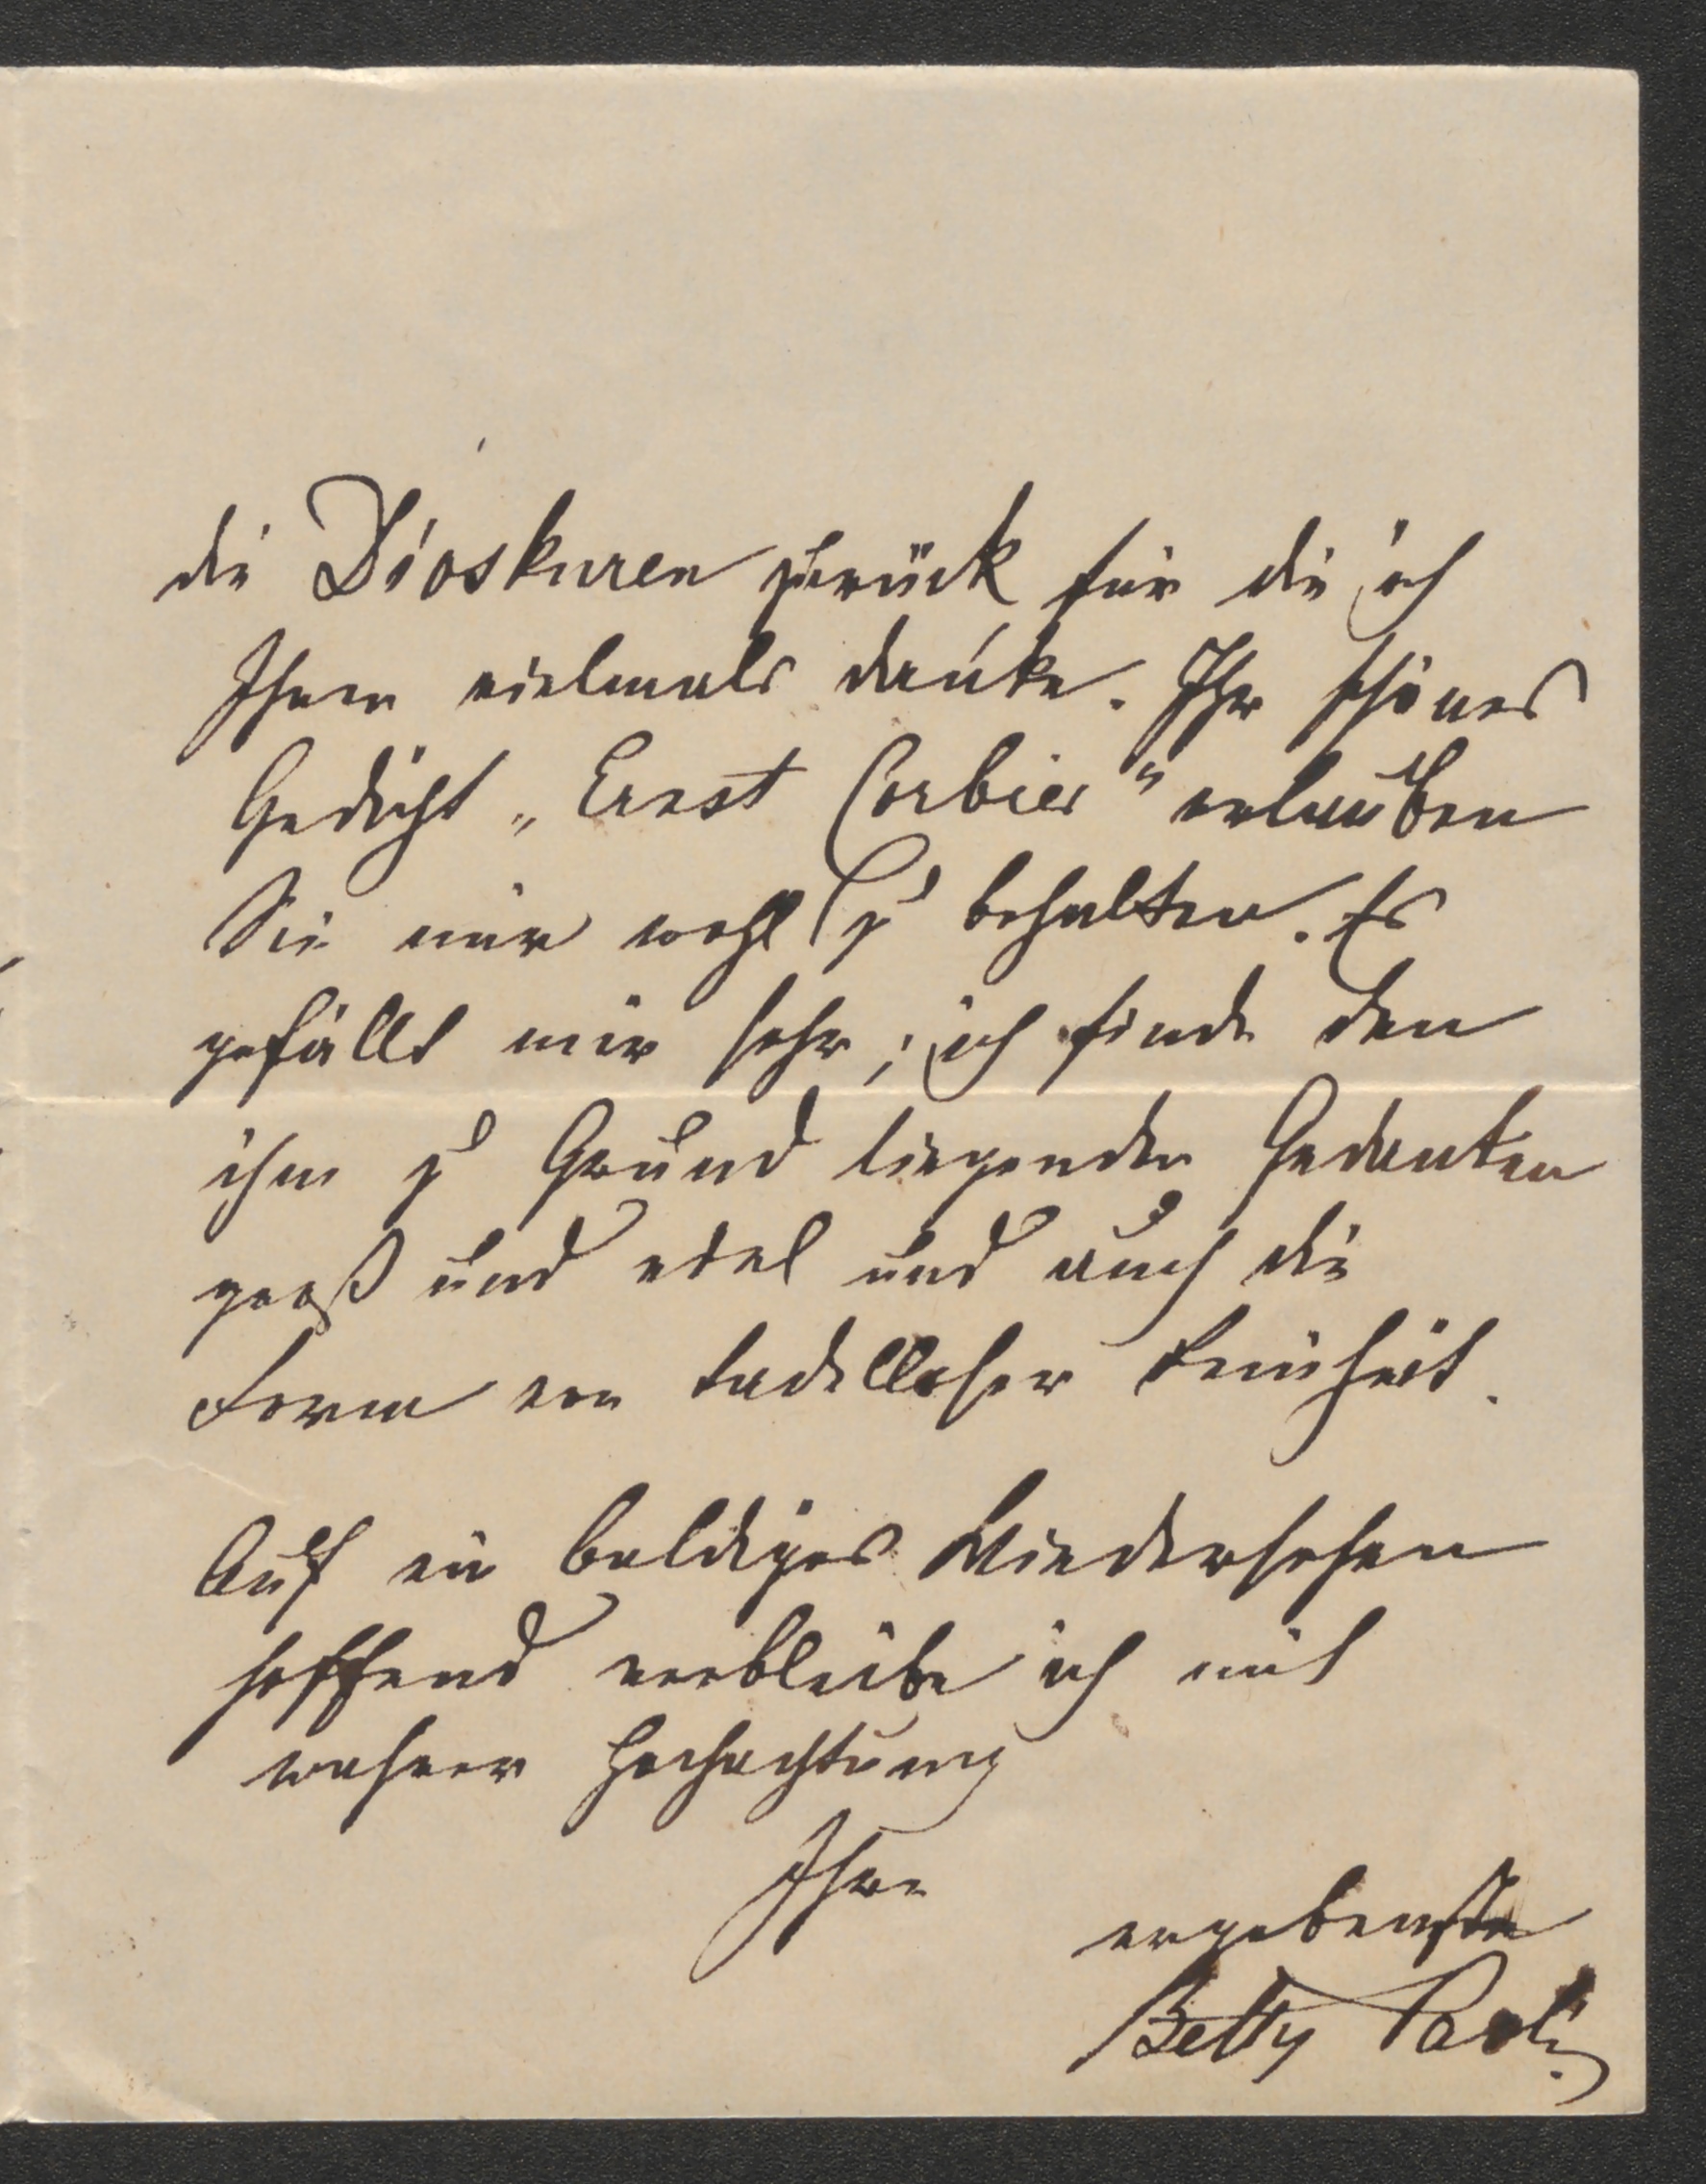 die Dioskuren zurück für die ich
Ihnen vielmals danke. Ihr schönes
Gedicht „Ernst Corbier" erlauben
Sie mir wohl zu behalten. Es
gefällt mir sehr; ich finde den
ihm zu Grund liegenden Gedanken
groß und edel und auch die
Form von tadelloser Reinheit.
Auf ein baldiges Wiedersehen
hoffend verbleibe ich mit
wahrer Hochachtung
Ihre
ergebenste
Betty Paoli